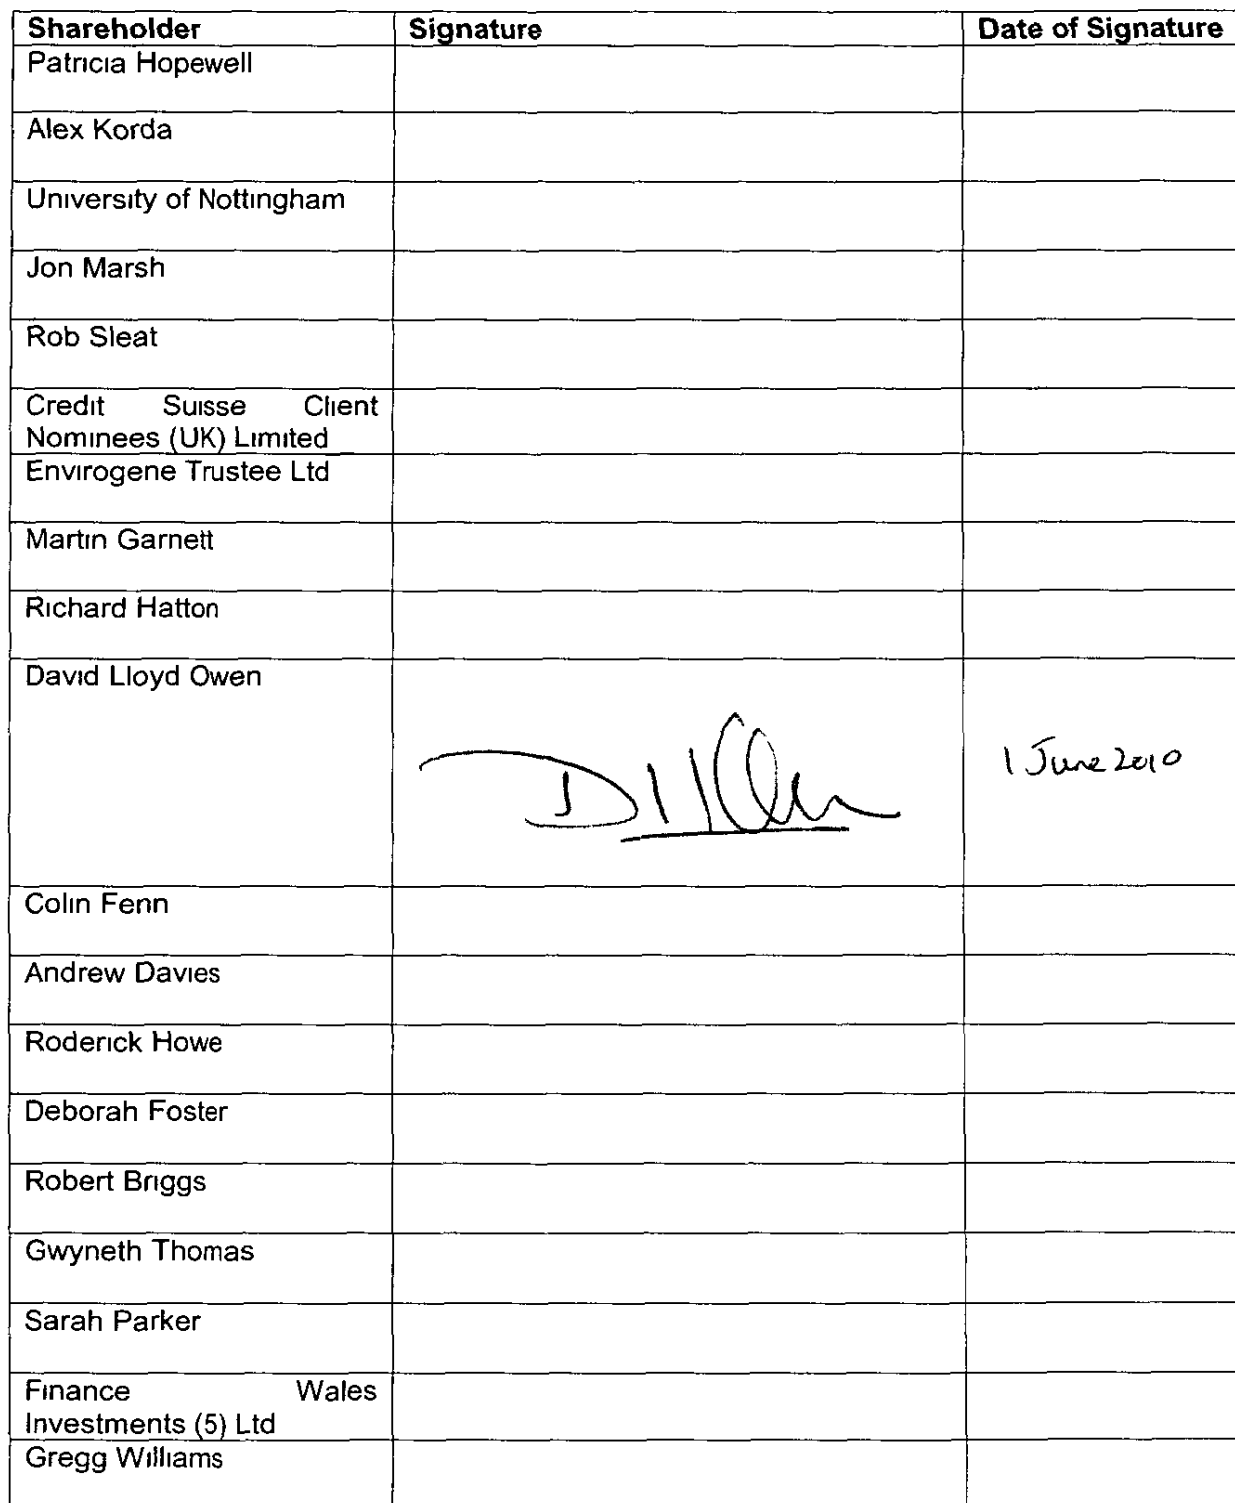 Shareholder Signature Date of Signature
Patricia Hopewell
Alex Korda
University of Nottingham
Jon Marsh
Rob Sleat
Credit Suisse Client
Nominees (UK) Limited
Envirogene Trustee Ltd
Martin Garnett
Richard Hatton
David Lloyd Owen
1 June 2010
Colin Fenn
Andrew Davies
Roderick Howe
Deborah Foster
Robert Briggs
Gwyneth Thomas
Sarah Parker
Finance Wales
Investments (5) Ltd
Gregg Williams